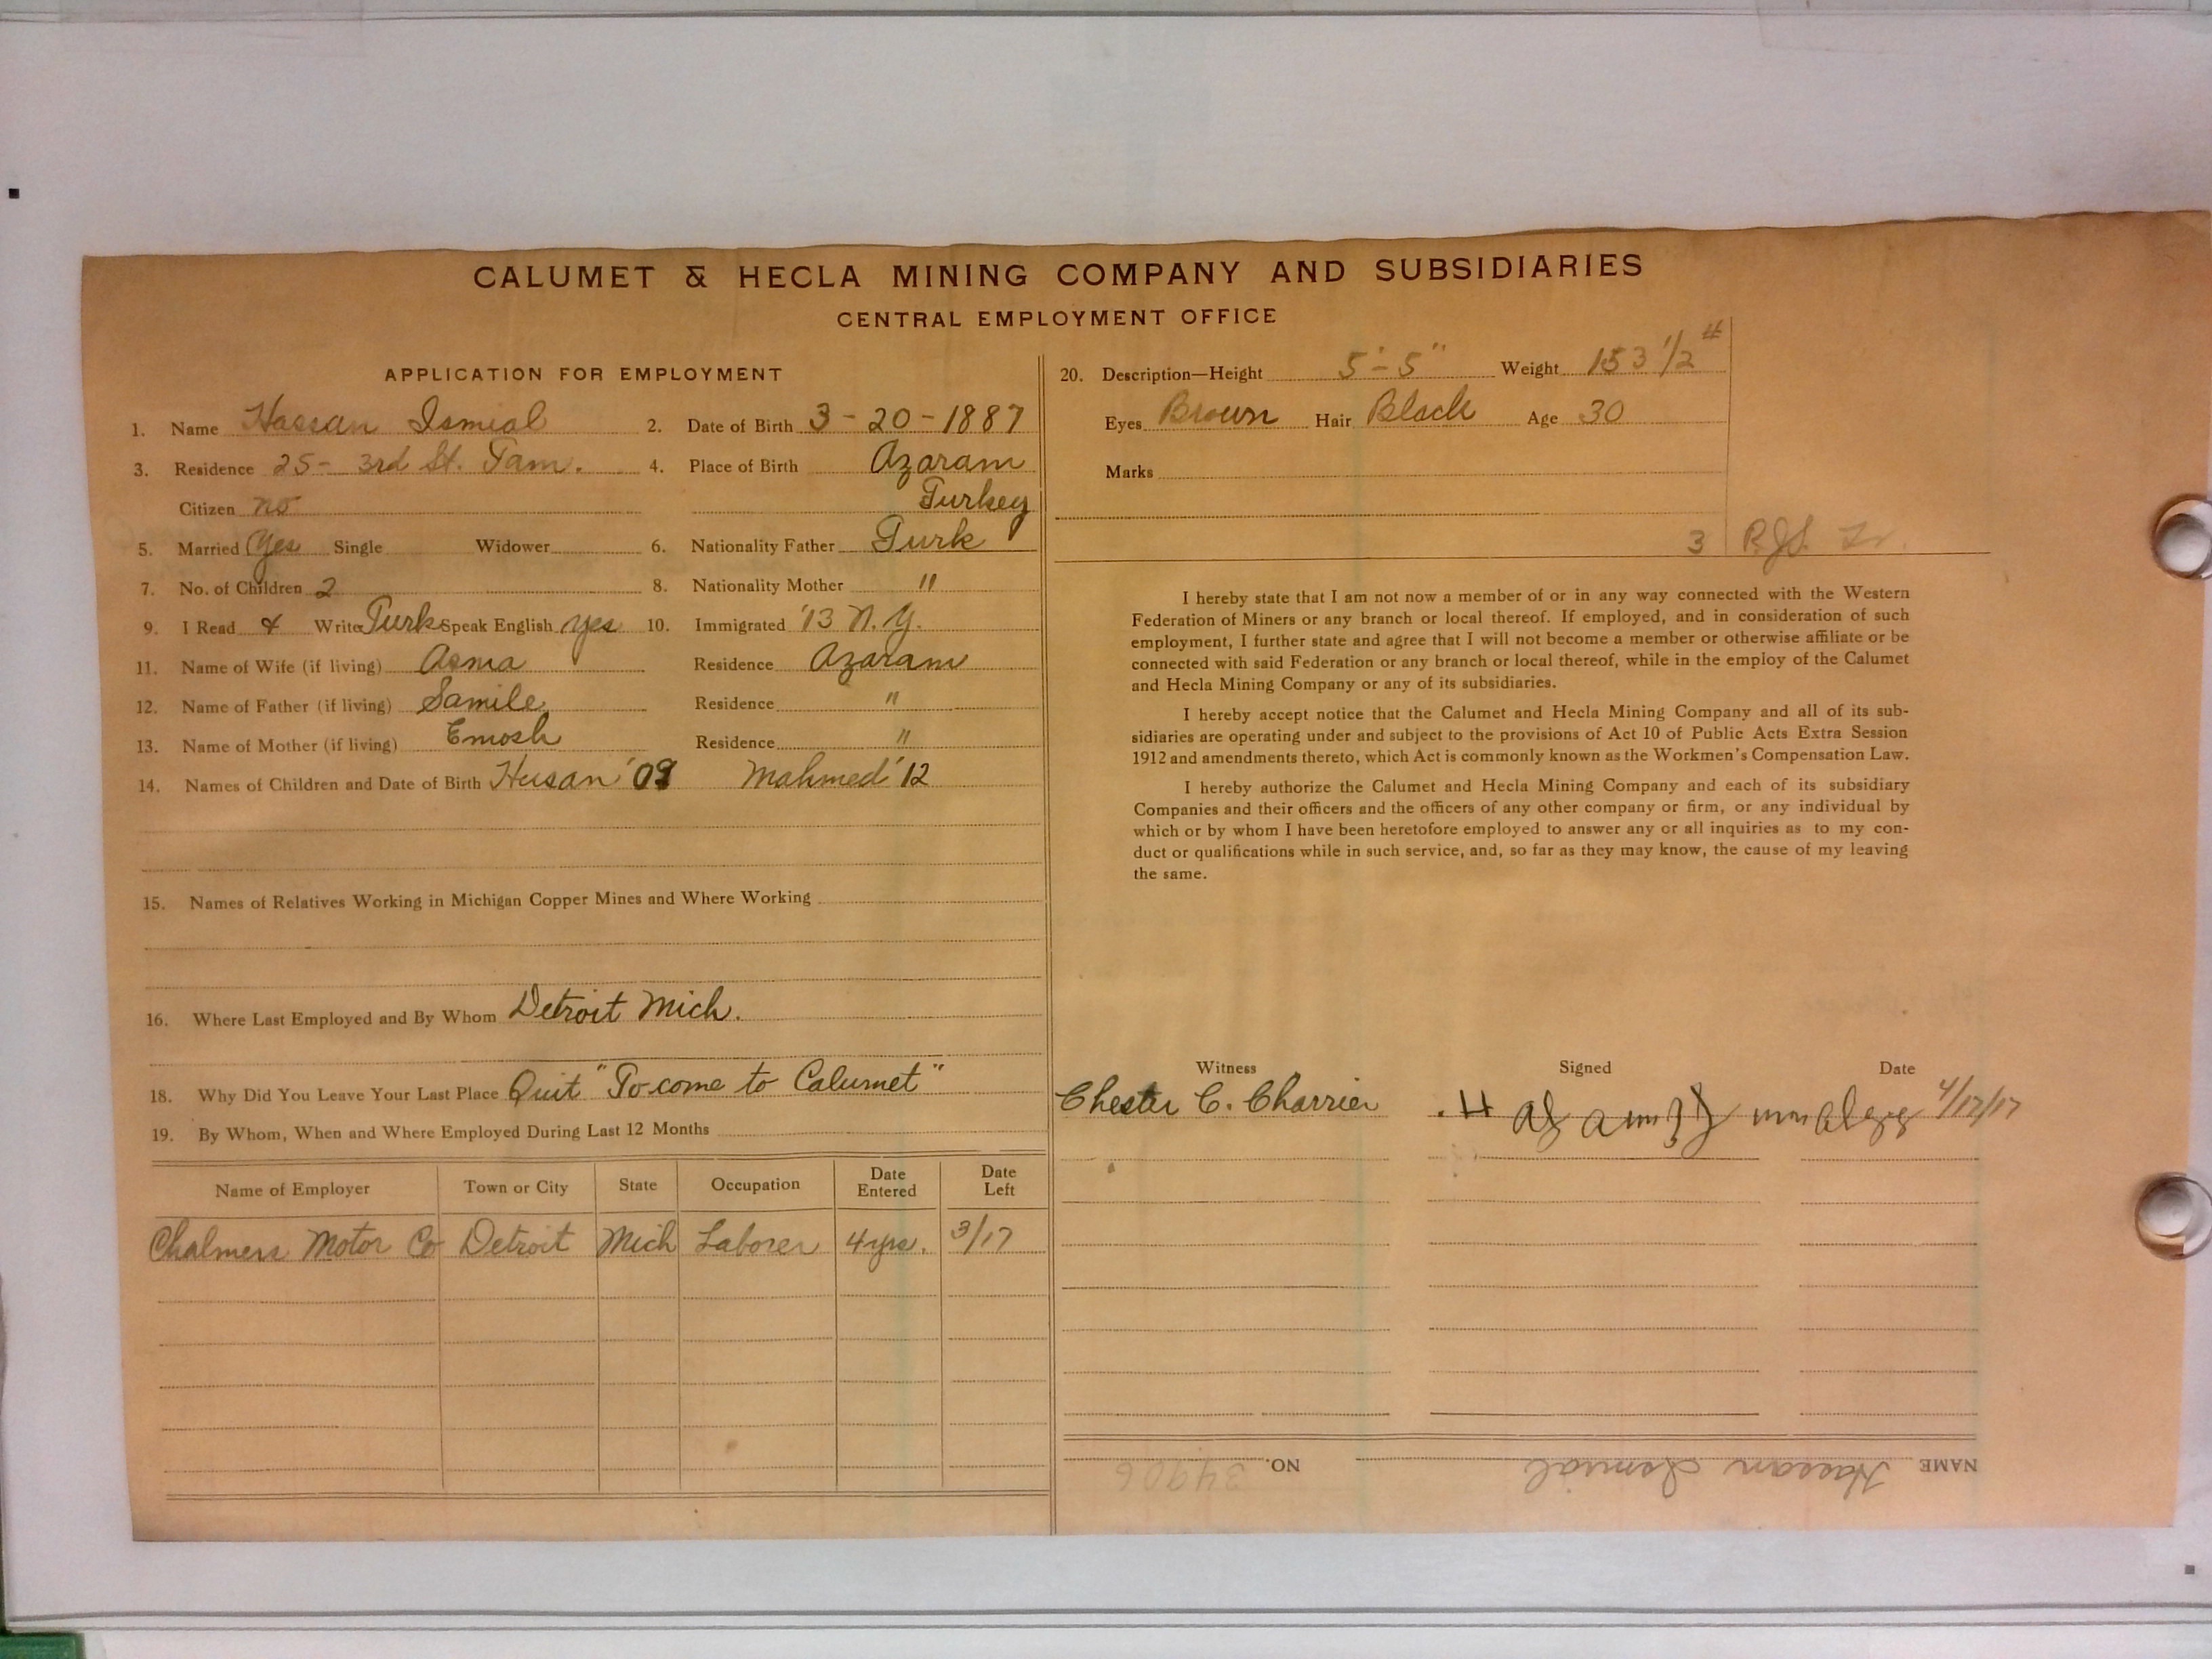 CALUMET & HECLA MINING COMPANY AND SUBSIDIARIES
CENTRAL EMPLOYMENT OFFICE
APPLICATION FOR EMPLOYMENT
1. Name Hassan Ismial 2. Date of Birth 3-20-1887
3. Residence 25- 3rd St. Tam. 4. Place of Birth Azaram
Citizen no Turkey
5. Married Yes Single Widower 6. Nationality Father Turk
7. No. of Children 2 8. Nationality Mother "
9. I Read & Write Turk Speak English yes 10. Immigrated '13 N.Y.
11. Name of Wife (if living) Asma Residence Azaram
12. Name of Father (if living) Samile Residence "
13. Name of Mother (if living) Emosh Residence "
14. Names of Children and Date of Birth Husan '09 Mahmed '12
15. Names of Relatives Working in Michigan Copper Mines and Where Working
16. Where Last Employed and By Whom Detroit Mich.
18. Why Did You Leave Your Last Place Quit "To come to Calumet"
19. By Whom, When and Where Employed During Last 12 Months
Name of Employer Town or City State Occupation Date Entered Date Left
Chalmers Motor Co Detroit Mich Laborer 4 yrs. 3/17
20. Description—Height 5'-5" Weight 153 1/2 #
Eyes Brown Hair Black Age 30
Marks
3
I hereby state that I am not now a member of or in any way connected with the Western
Federation of Miners or any branch or local thereof. If employed, and in consideration of such
employment, I further state and agree that I will not become a member or otherwise affiliate or be
connected with said Federation or any branch or local thereof, while in the employ of the Calumet
and Hecla Mining Company or any of its subsidiaries.
I hereby accept notice that the Calumet and Hecla Mining Company and all of its sub-
sidiaries are operating under and subject to the provisions of Act 10 of Public Acts Extra Session
1912 and amendments thereto, which Act is commonly known as the Workmen's Compensation Law.
I hereby authorize the Calumet and Hecla Mining Company and each of its subsidiary
Companies and their officers and the officers of any other company or firm, or any individual by
which or by whom I have been heretofore employed to answer any or all inquiries as to my con-
duct or qualifications while in such service, and, so far as they may know, the cause of my leaving
the same.
Witness Signed Date
Chester C. Charrier 4/17/17
NAME Hassan Ismial NO. 34906